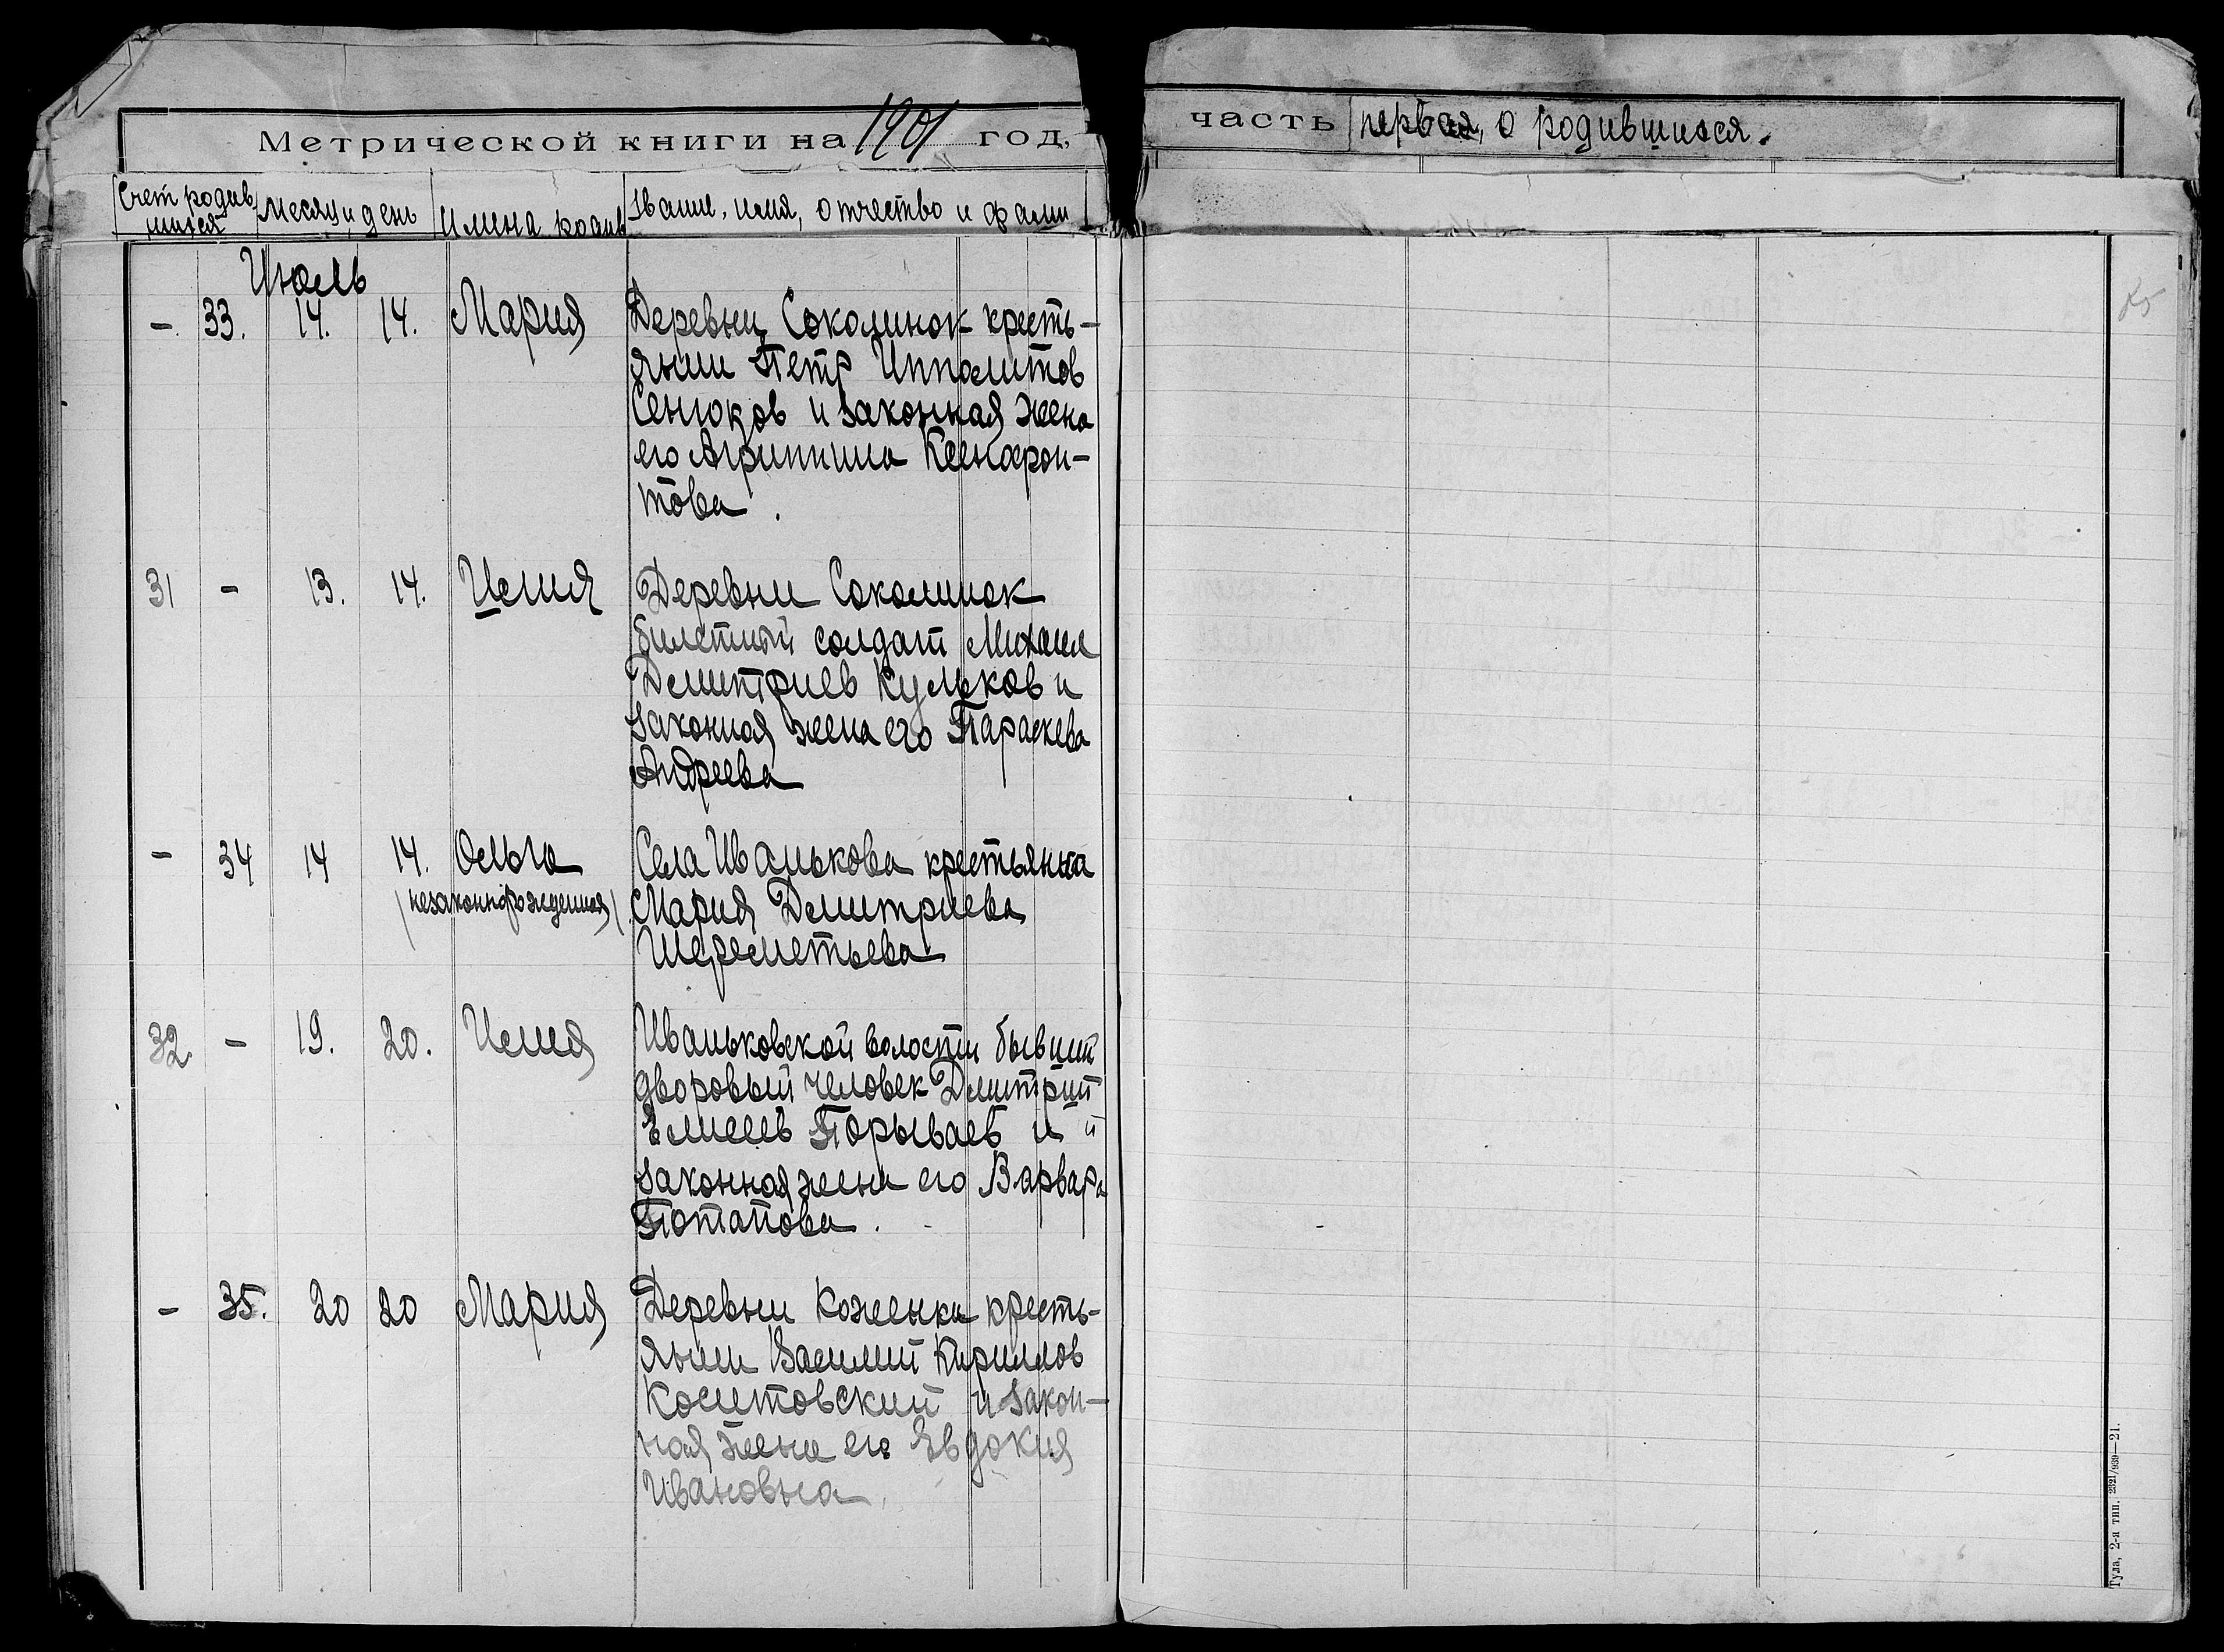 Метрической книги на 1901 год,
часть первая, о родившихся.
Счет родив
шихся
Месяц и день
Имена родив
Звание, имя, отчество и фами
Июль
— 33. 14. 14. Мария Деревни Соколинок кресть-
янин Петр Ипполитов
Сенюков и законная жена
его Агрипина Ксенофон-
това.
31 — 13. 14. Илия Деревни Соколинок
билетный солдат Михаил
Дмитриев Кульков и
законная жена его Параскева
Андреева
— 34 14 14. Ольга Села Иванькова крестьянка
(незаконнорожденная) Мария Дмитриева
Шереметьева
32 — 19. 20. Илия Иваньковской волости бывший
дворовый человек Дмитрий
Елисеев Порываев и и
законная жена его Варвара
Потапова.
— 35. 20 20 Мария Деревни Коженки кресть-
янин Василий Кириллов
и закон-
ная жена его Евдокия
Ивановна.
Тула, 2-я тип. 2321/939—21.